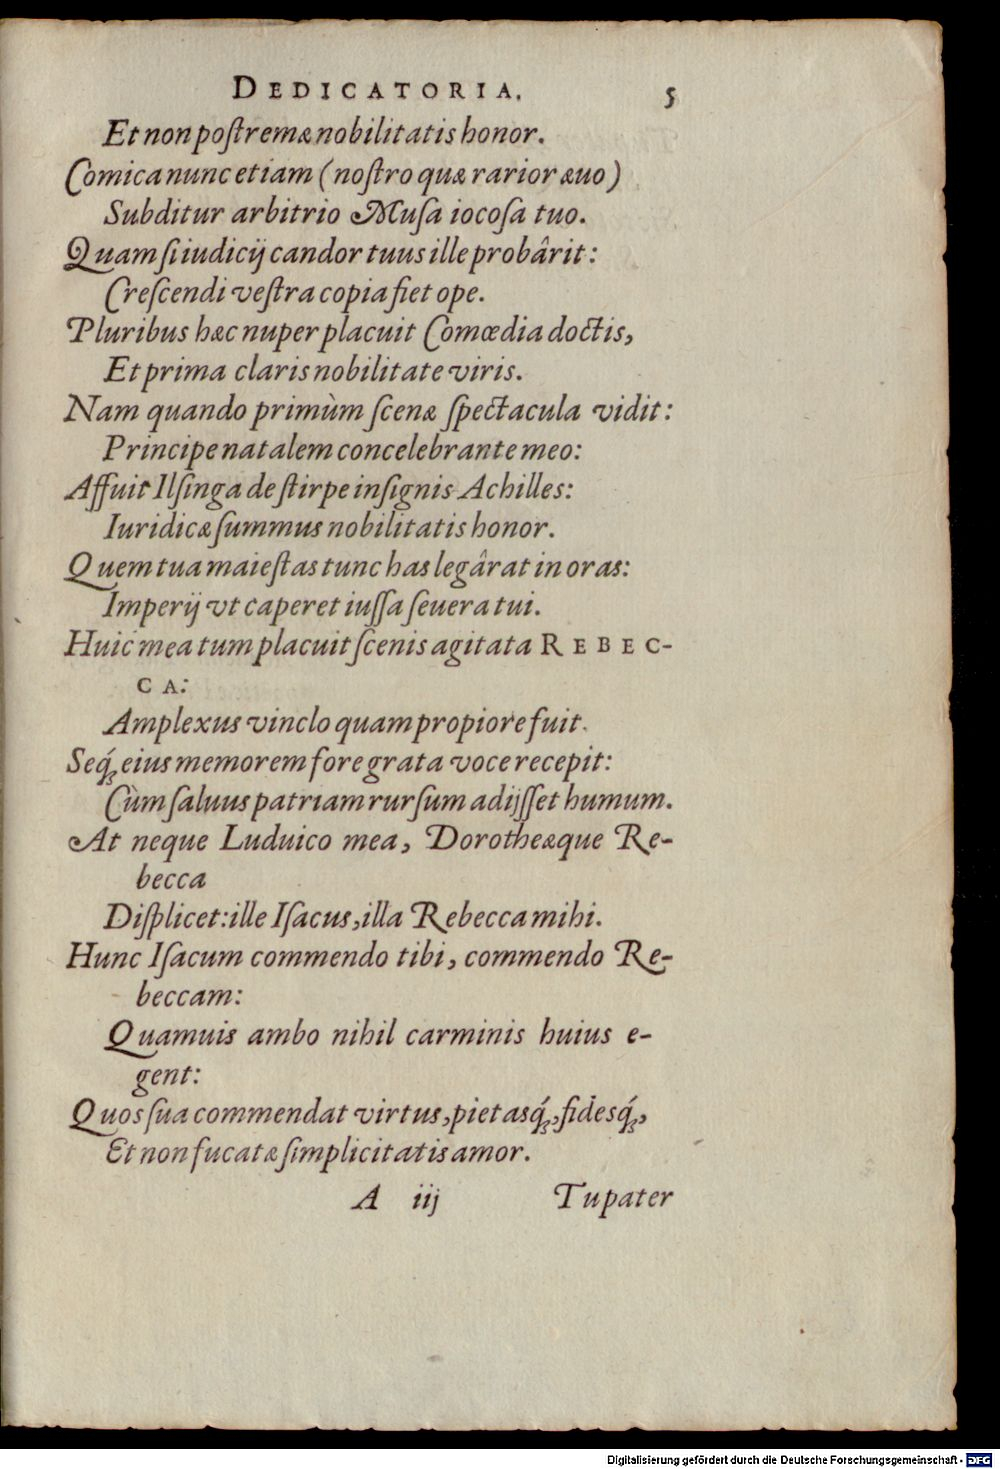 DEDICATORIA. 5
Et non poſtremæ nobilitatis honor.
Comica nunc etiam (noſtro quæ rarior æuo)
Subditur arbitrio Muſa iocoſa tuo.
Quam ſi iudicij candor tuus ille probârit:
Creſcendi veſtra copia fiet ope.
Pluribus hæc nuper placuit Comœdia doctis,
Et prima claris nobilitate viris.
Nam quando primùm ſcenæ ſpectacula vidit:
Principe natalem concelebrante meo:
Affuit Ilſinga de ſtirpe inſignis Achilles:
Iuridicæ ſummus nobilitatis honor.
Quem tua maieſtas tunc has legârat in oras:
Imperij vt caperet iuſſa ſeuera tui.
Huic mea tum placuit ſcenis agitata REBEC-
CA:
Amplexus vinclo quam propiore fuit.
Seq́; eius memorem fore grata voce recepit:
Cùm ſaluus patriam rurſum adijſſet humum.
At neque Luduico mea, Dorotheæque Re-
becca
Diſplicet: ille Iſacus, illa Rebecca mihi.
Hunc Iſacum commendo tibi, commendo Re-
beccam:
Quamuis ambo nihil carminis huius e-
gent:
Quos ſua commendat virtus, pietasq́;, fidesq́;,
Et non fucatæ ſimplicitatis amor.
A iij Tu pater
Digitalisierung gefördert durch die Deutsche Forschungsgemeinschaft - DFG